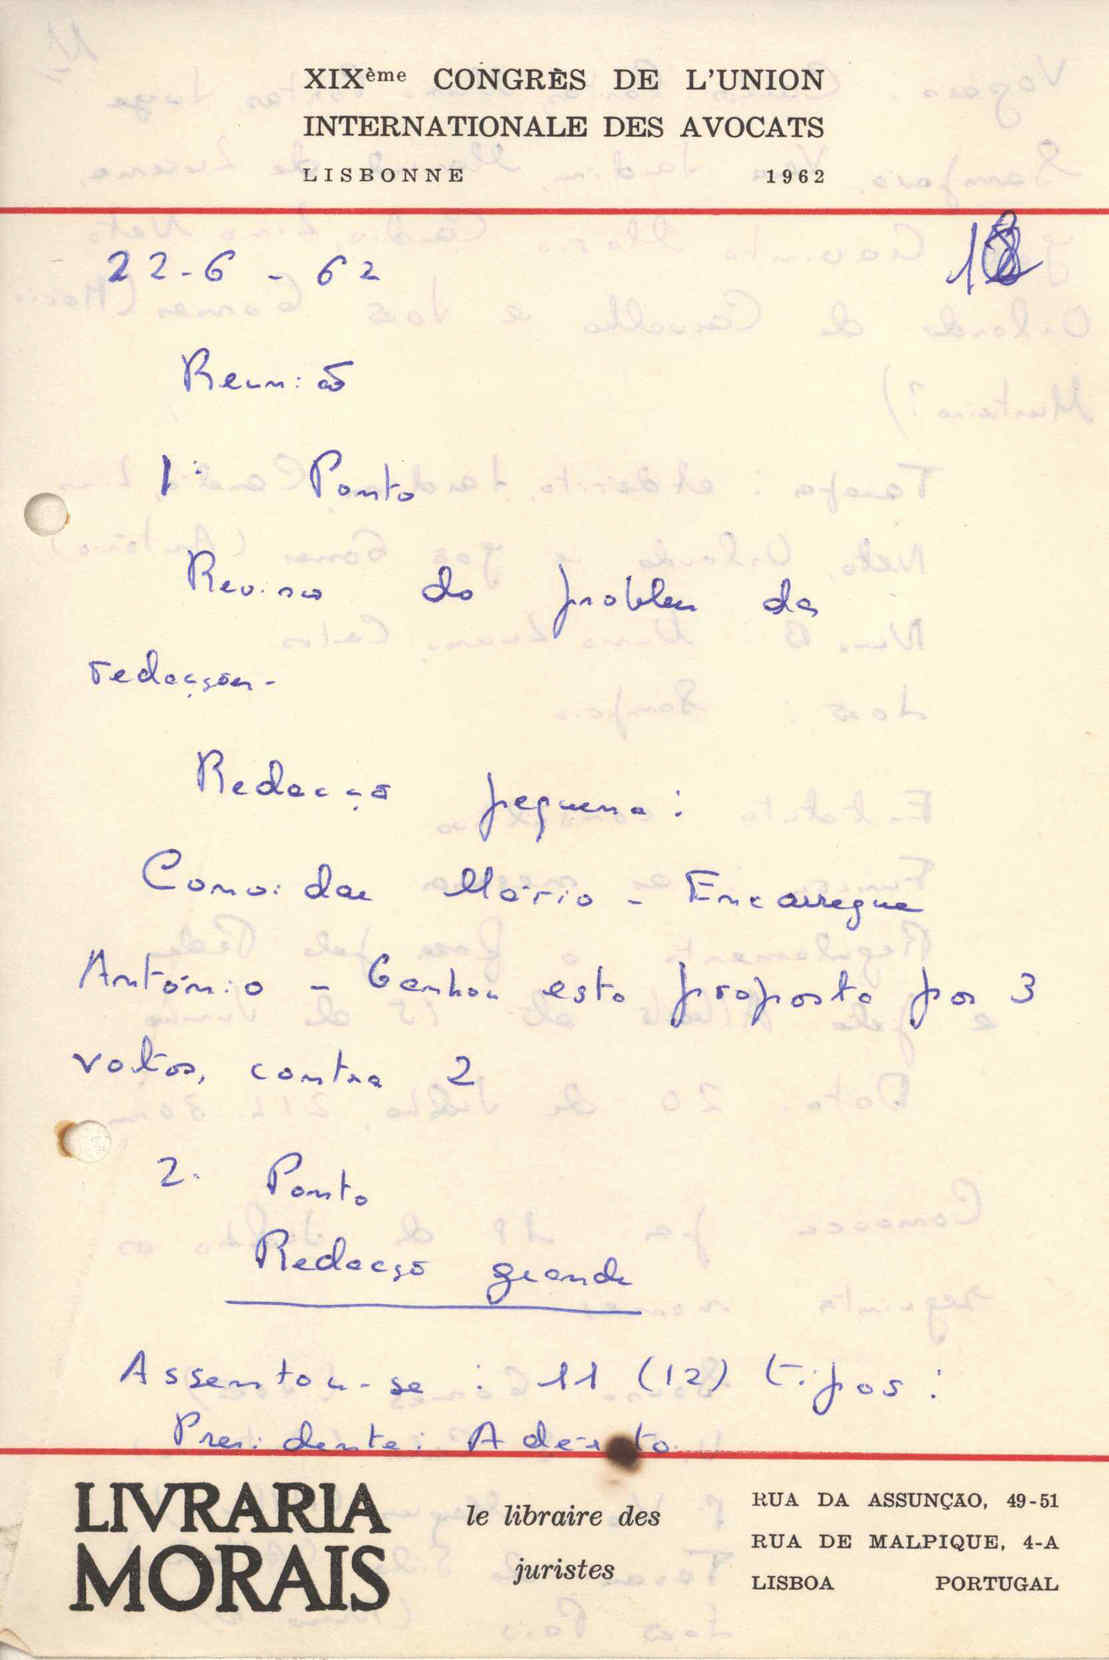 XIXème CONGRÈS DE L'UNION
INTERNATIONALE DES AVOCATS
LISBONNE 1962
22-6-62
Reunião
1º Ponto
Revisão do problema das
redacções -
Redacção pequena:
Convidar Mário - Encarregue
António - Ganhou esta proposta por 3
votos, contra 2
2. Ponto
Redacção grande
Assentou-se: 11 (12) tipos:
Presidente: Adérito
LIVRARIA
MORAIS
le libraire des
juristes
RUA DA ASSUNÇÃO, 49-51
RUA DE MALPIQUE, 4-A
LISBOA PORTUGAL